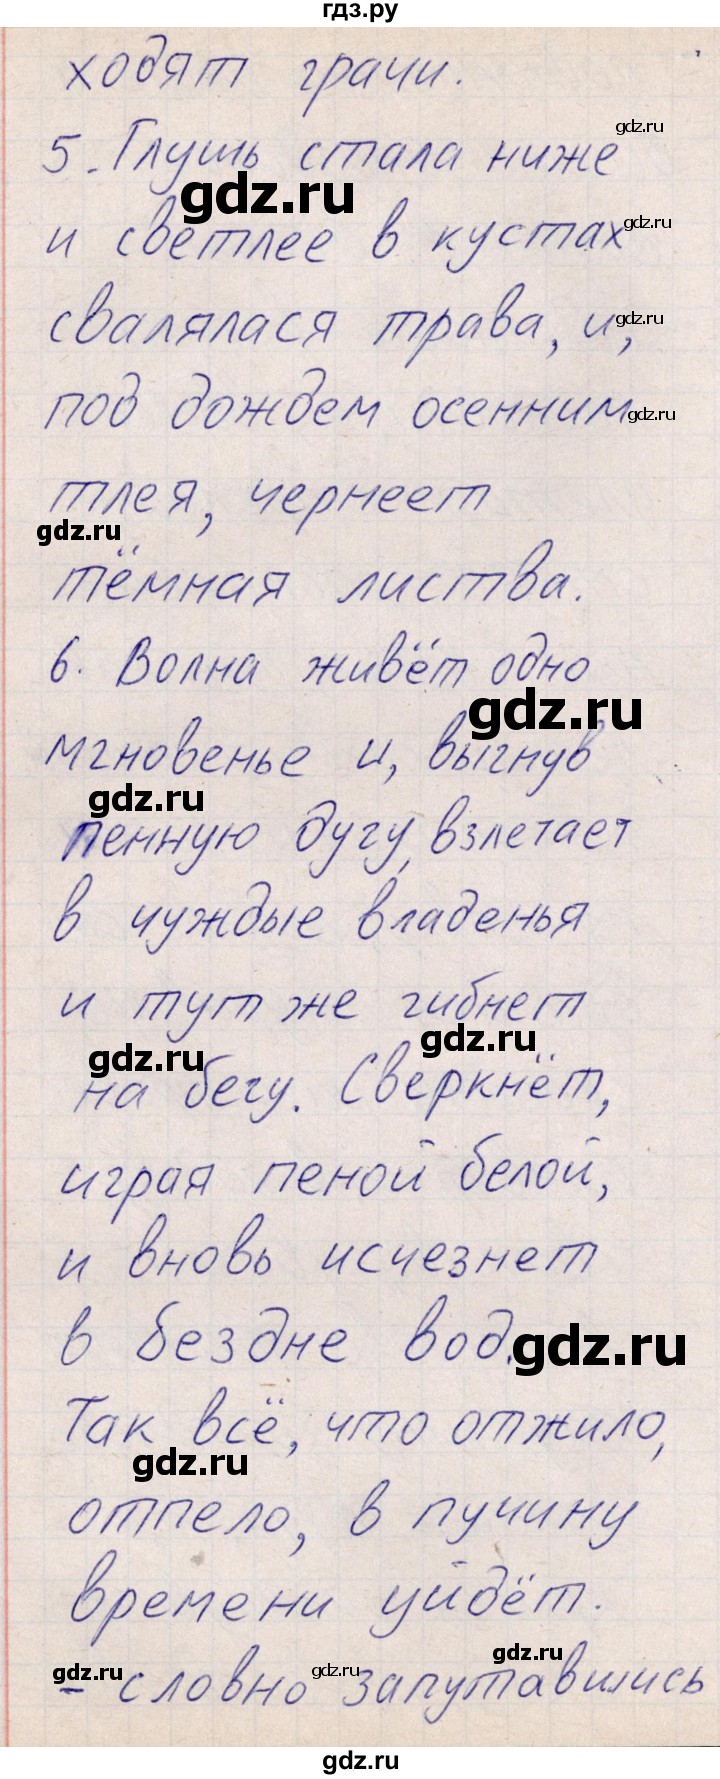 гдз.ру
ходят грачи.
gdz.ru
5. Глушь стала ниже
gdz.ru
gdz.ru
и светлее в кустах
свалялася трава, и,
gdz.ru
под дождем осенним
gdz.ru
тлея, чернеет
gdz.ru
тёмная листва.
6. Волна живёт одно
gdz.ru
мгновенье и, выгнув
gdz.ru
пенную дугу, взлетает
в чуждые владенья
и тут же гибнет
gdz.ru
gdz.ru
на бегу. Сверкнёт,
играя пеной белой,
и вновь исчезнет
в бездне вод.
gdz.ru
Так всё, что отжило,
gdz.ru
отпело, в пучину
времени уйдёт.
gdz.ru
gdz.ru
gdz.ru
– словно запутавшись
gdz.ru